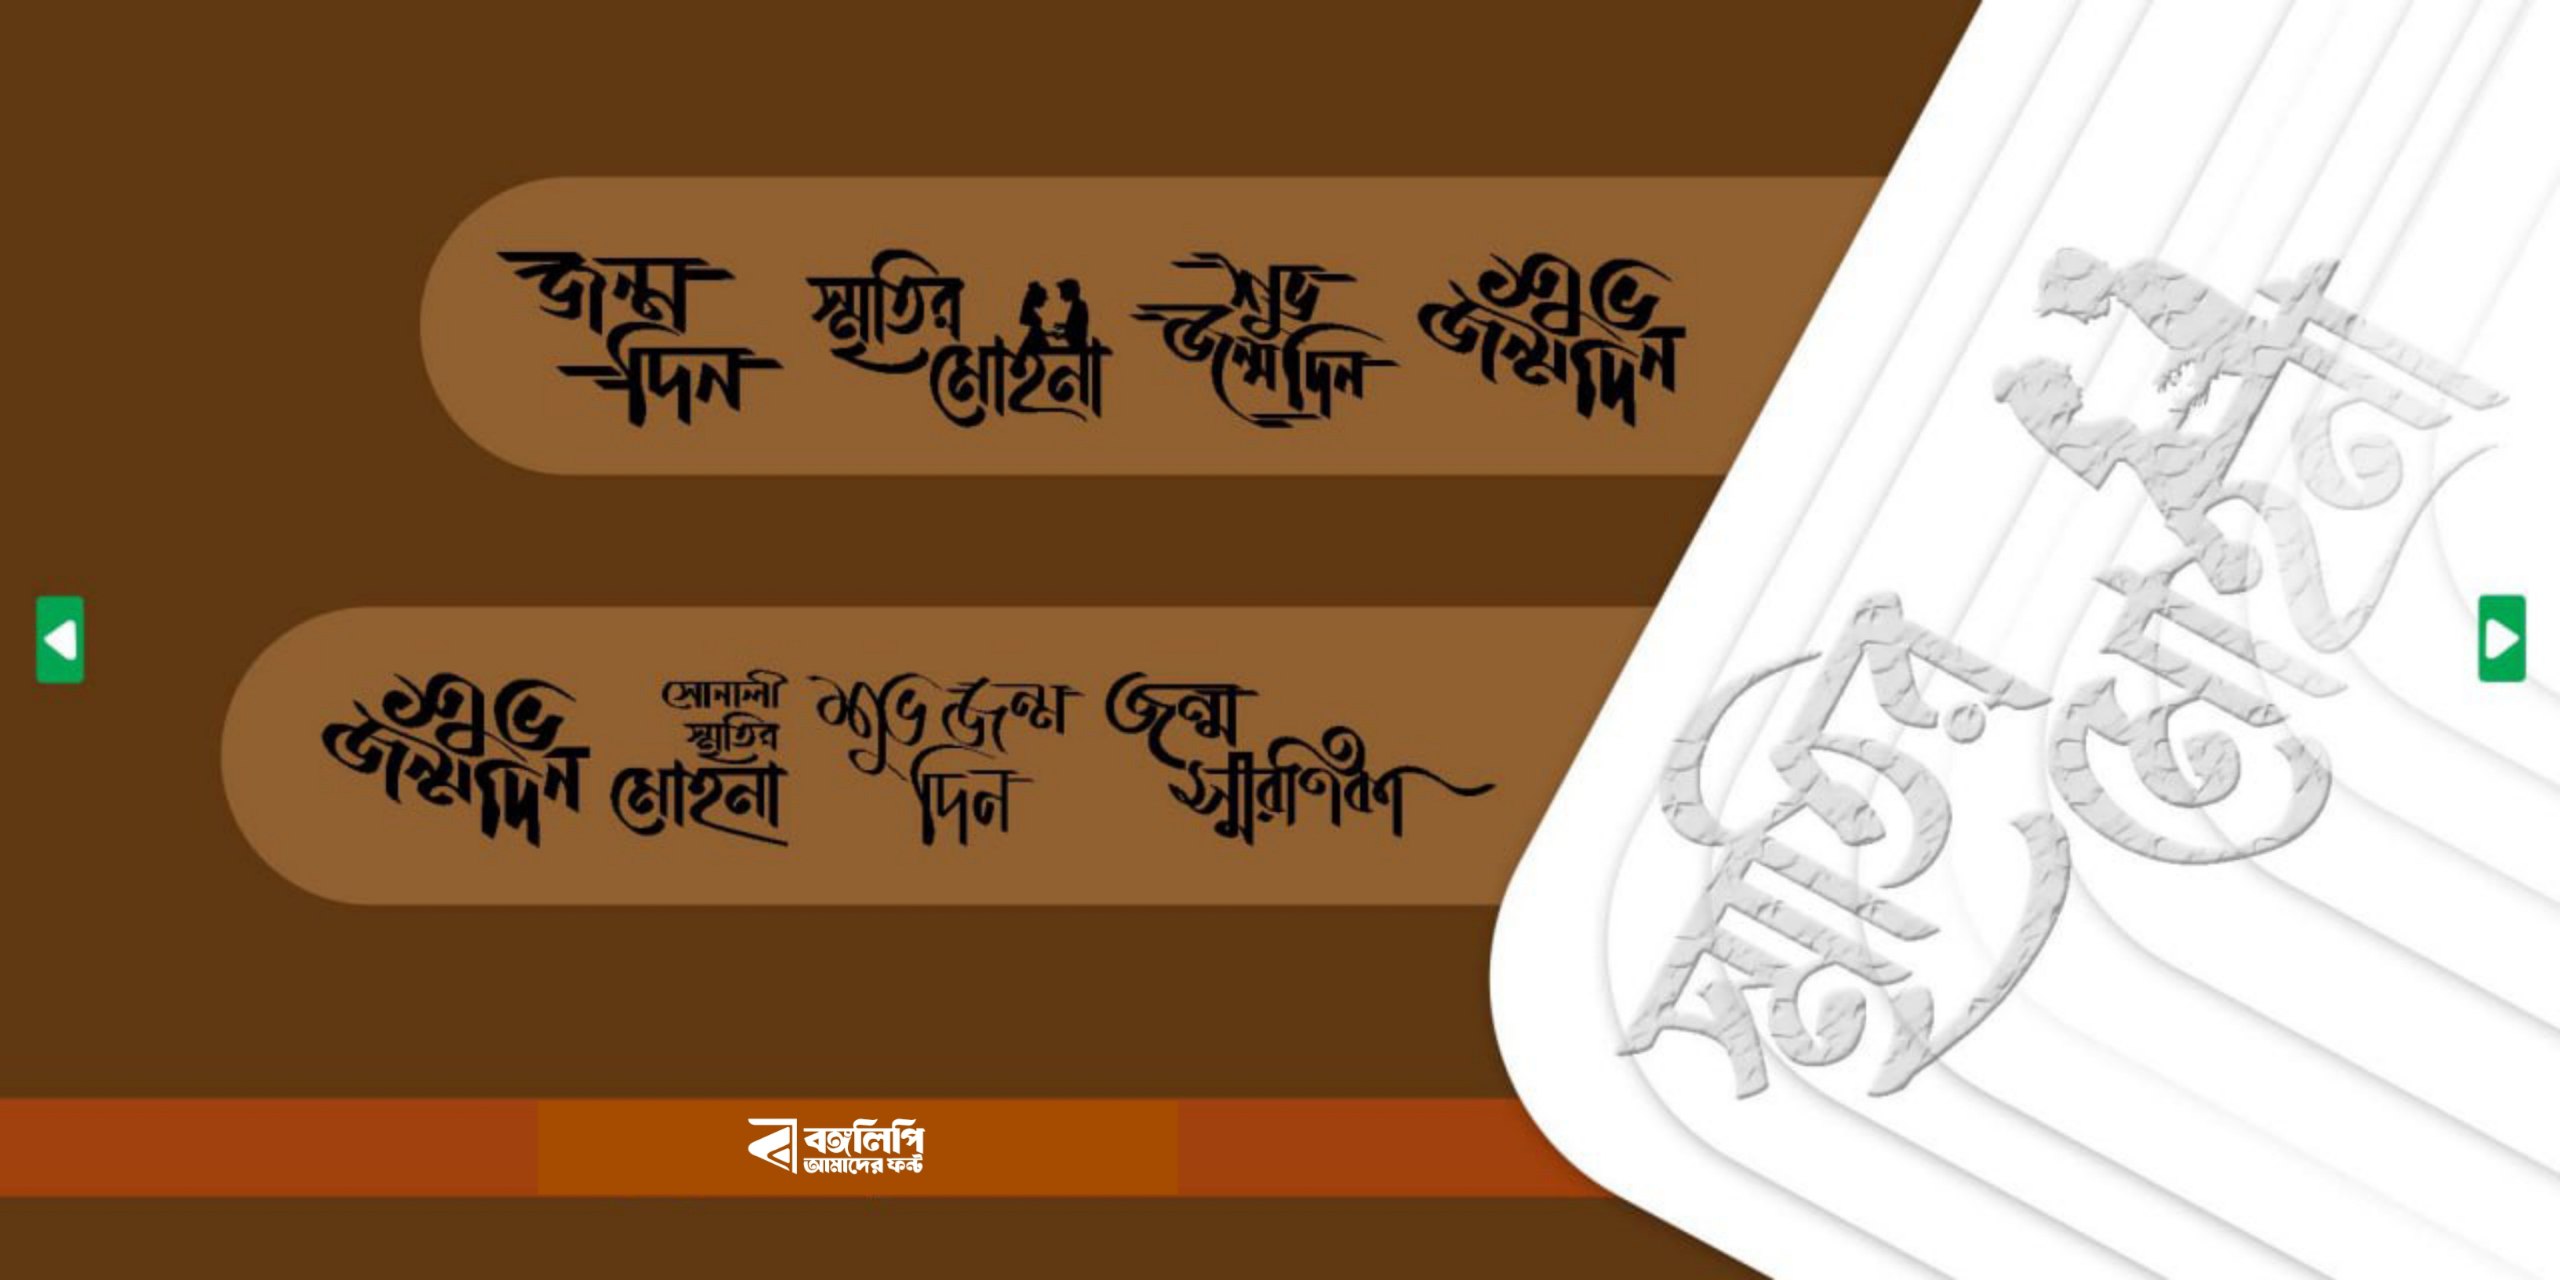 জন্ম
দিন
স্মৃতির
মোহনা
শুভ
জন্মদিন
শুভ
জন্মদিন
শুভ
জন্মদিন
সোনালী
স্মৃতির
মোহনা
শুভ জন্ম
দিন
জন্ম
স্মরণি
স্মৃতির
মোহনা
বঙ্গলিপি
আমাদের ফন্ট